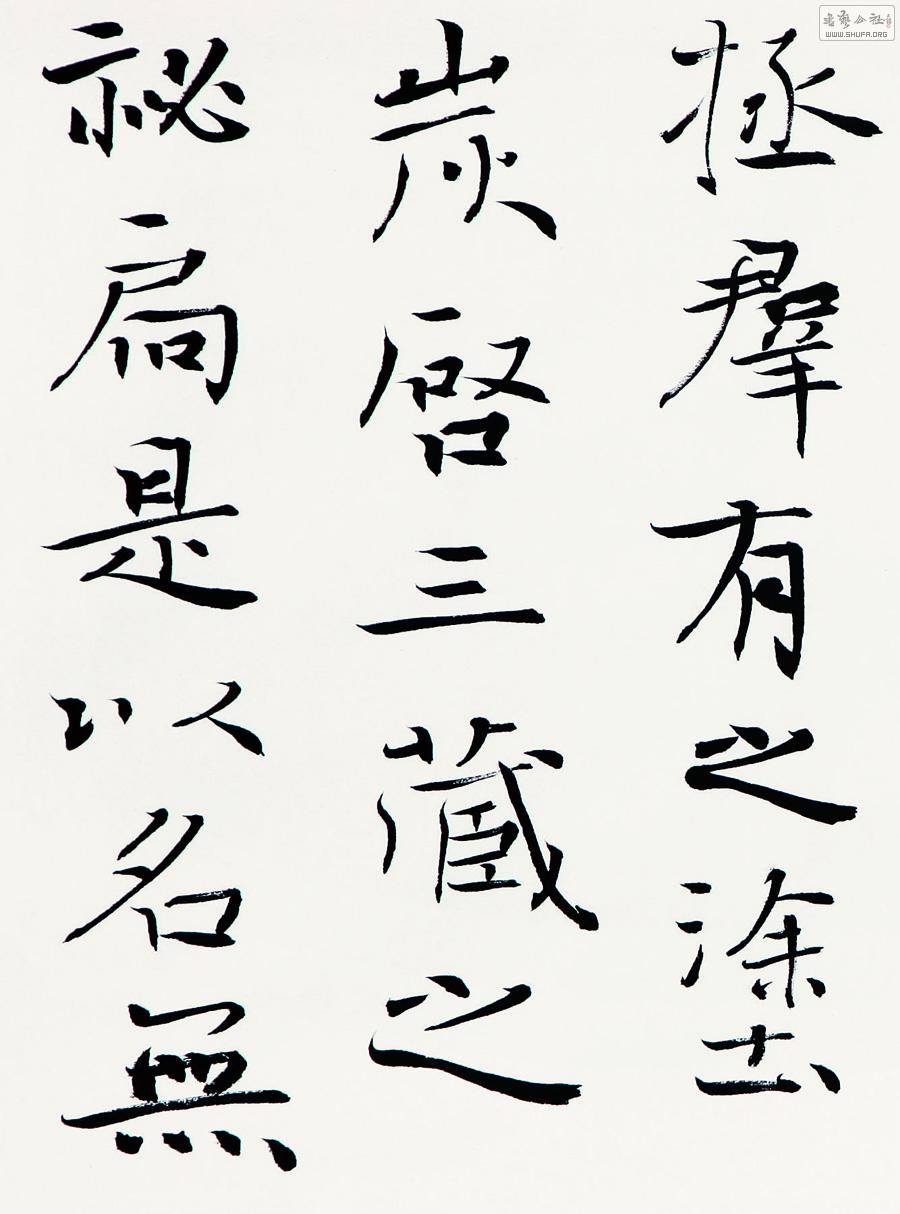 拯羣有之塗
炭啓三藏之
祕扃是以名無
書藝公社
WWW.SHUFA.ORG